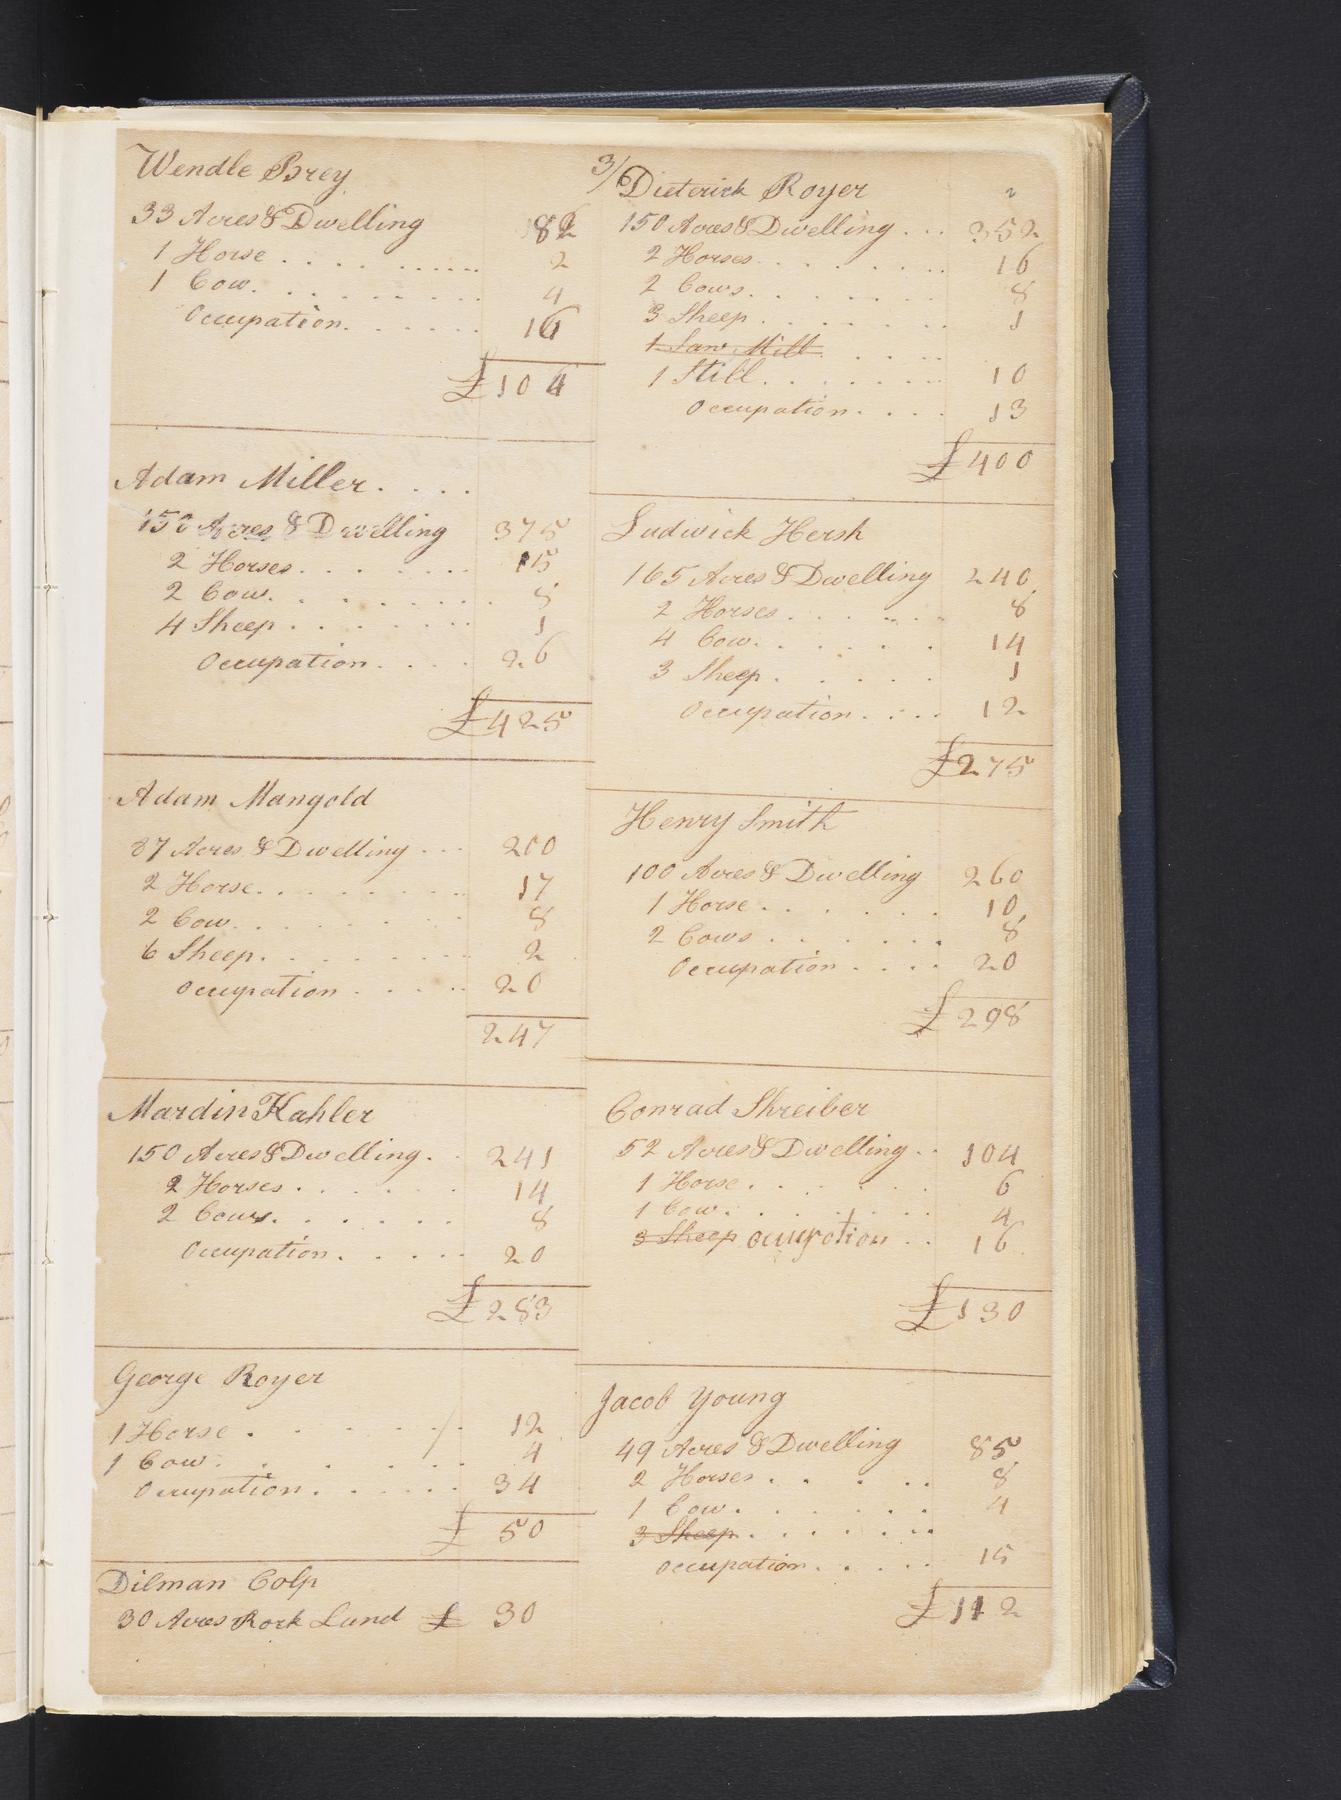 Wendle Brey
33 Acres & Dwelling 82
1 Horse . . . . . . . . . . 2
1 Cow. . . . . . . . . 4
Occupation. . . . . . 16
£ 104
Adam Miller. . . .
150 Acres & Dwelling 375
2 Horses. . . . . . . 15
2 Cows. . . . . . . . 8
4 Sheep . . . . . . . 1
Occupation. . . . 26
£ 425
Adam Mangold
87 Acres & Dwelling . . . 200
2 Horse. . . . . . . . 17
2 Cow. . . . . . . 8
6 Sheep. . . . . . . . 2
Occupation . . . . . 20
247
Mardin Kahler
150 Acres & Dwelling . . 241
2 Horses . . . . . . 14
2 Cows. . . . . . 8
Occupation . . . . . 20
£ 283
George Royer
1 Horse . . . . . . / . 12
1 Cow . . . . . . . 4
Occupation . . . . . . 34
£ 50
Dilman Colp
30 Acres Rock Land £ 30
3/6 Dieterick Royer
150 Acres & Dwelling . . . 352
2 Horses . . . . . . . . 16
2 Cows. . . . . . . 8
3 Sheep . . . . . . . 1
1 Saw Mill . . . .
1 Still . . . . . . . . 10
Occupation . . . . 13
£ 400
Ludwick Hersh
165 Acres & Dwelling 240
2 Horses . . . . . . . 8
4 Cow. . . . . . . 14
3 Sheep . . . . . 1
Occupation . . . . 12
£ 275
Henry Smith
100 Acres & Dwelling 260
1 Horse . . . . . . 10
2 Cows . . . . . . 8
Occupation . . . . 20
£ 298
Conrad Shreiber
52 Acres & Dwelling . . 104
1 Horse . . . . . . 6
1 Cow . . . . . . . 4
3 Sheep occupation . . 16
£ 130
Jacob Young
49 Acres & Dwelling 85
2 Horses . . . . . 8
1 Cow . . . . . . . 4
3 Sheep . . . . . . .
Occupation . . . . . 15
£ 112